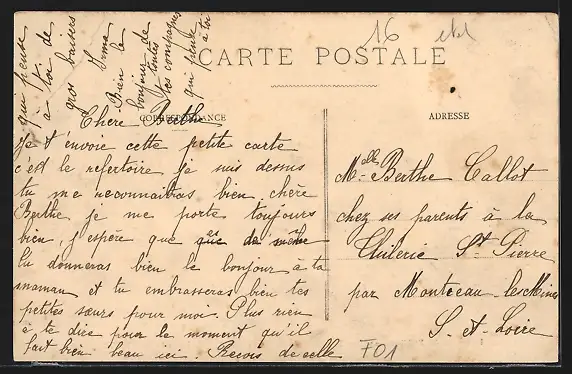 16
CARTE POSTALE
CORRESPONDANCE
ADRESSE
Chère Berthe
Je t'envoie cette petite carte
c'est le refertoire je suis dessus
tu me reconnaitras bien chère
Berthe, je me porte toujours
bien, j'espère que de même
Tu donneras bien le bonjour à ta
maman et tu embrasseras bien tes
petites sœurs pour moi. Plus rien
à te dire pour le moment qu'il
fait bien beau ici. Reçois de celle
qui pense
à toi de
gros baisers
Irma
Bien le
bonjour de
toutes
compagnes
qui pense
à toi
Melle Berthe Callot
chez ses parents à la
Thilerie St Pierre
par Montceau-les-Mines
S.-et-Loire
F01